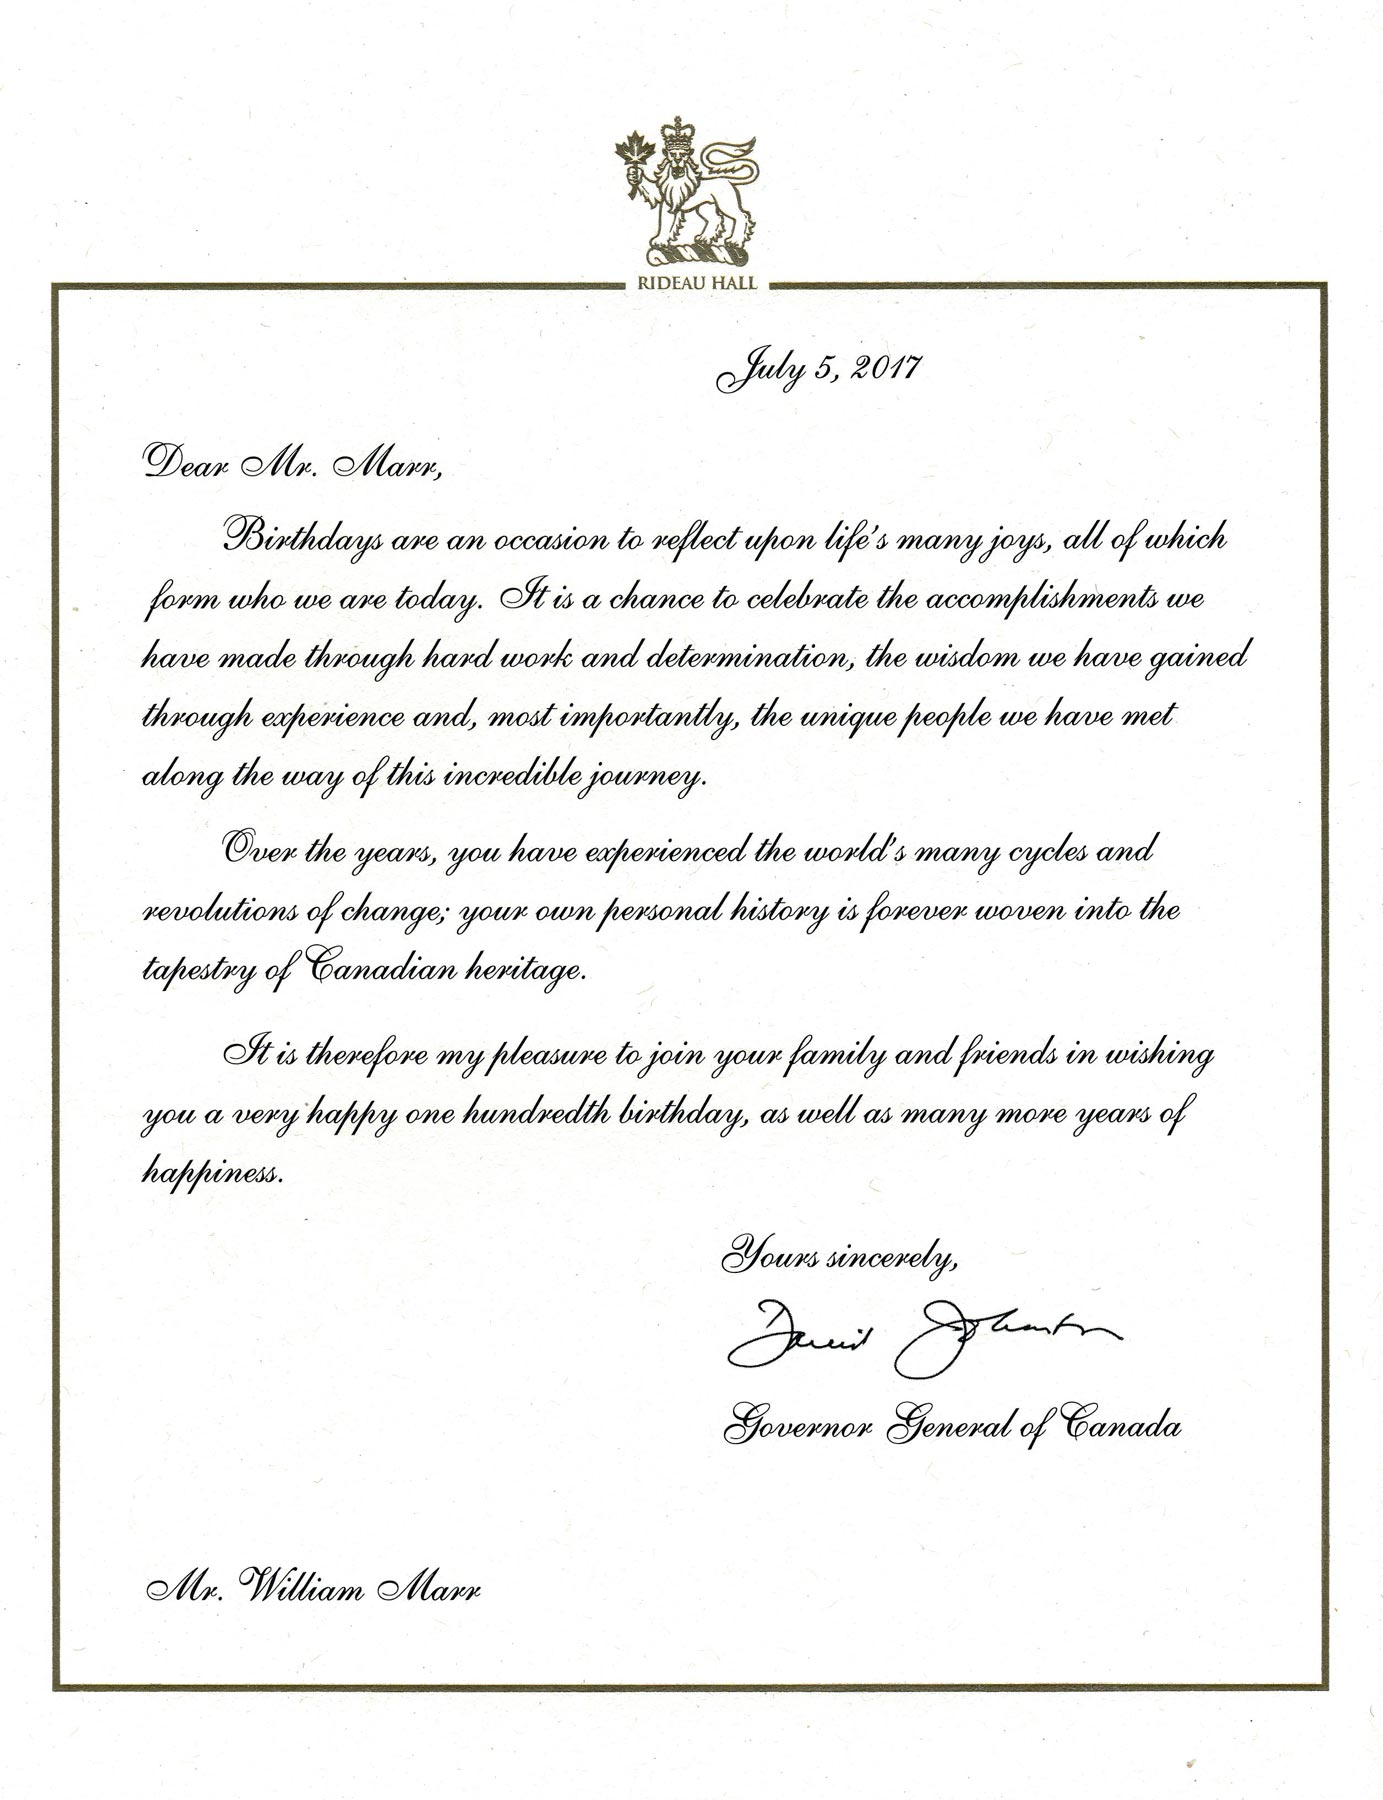 RIDEAU HALL
July 5, 2017
Dear Mr. Marr,
Birthdays are an occasion to reflect upon life's many joys, all of which
form who we are today. It is a chance to celebrate the accomplishments we
have made through hard work and determination, the wisdom we have gained
through experience and, most importantly, the unique people we have met
along the way of this incredible journey.
Over the years, you have experienced the world's many cycles and
revolutions of change; your own personal history is forever woven into the
tapestry of Canadian heritage.
It is therefore my pleasure to join your family and friends in wishing
you a very happy one hundredth birthday, as well as many more years of
happiness.
Yours sincerely,
David Johnston
Governor General of Canada
Mr. William Marr